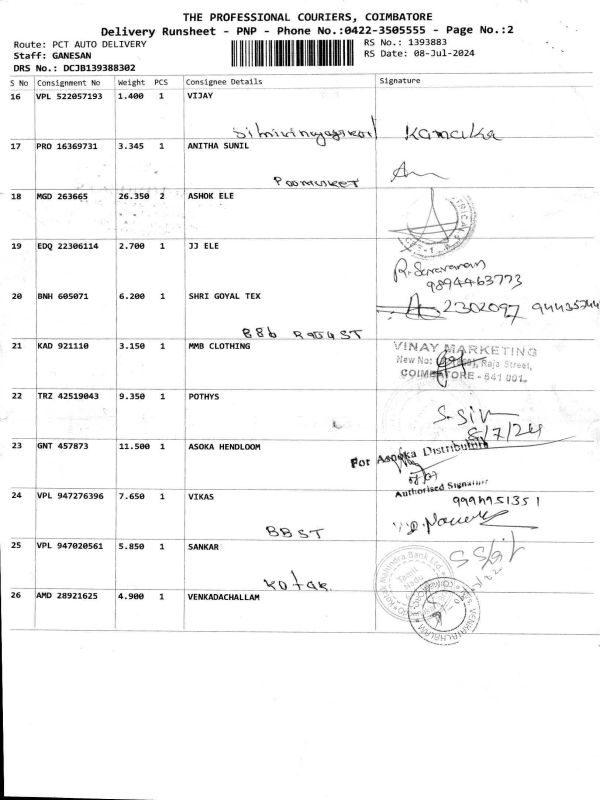 THE PROFESSIONAL COURIERS, COIMBATORE
Delivery Runsheet - PNP - Phone No.:0422-3505555 - Page No.:2
Route: PCT AUTO DELIVERY
Staff: GANESAN
DRS No.: DCJB139388302
RS No.: 1393883
RS Date: 08-Jul-2024
S No Consignment No Weight PCS Consignee Details Signature
16 VPL 522057193 1.400 1 VIJAY
Kanaka
17 PRO 16369731 3.345 1 ANITHA SUNIL
18 MGD 263665 26.350 2 ASHOK ELE
19 EDQ 22306114 2.700 1 JJ ELE
R. Saravanan
9894463773
20 BNH 605071 6.200 1 SHRI GOYAL TEX
2302097
21 KAD 921110 3.150 1 MMB CLOTHING
VINAY MARKETING
New No: Raja Street,
COIMBATORE - 641 001.
22 TRZ 42519043 9.350 1 POTHYS
8/7/24
23 GNT 457873 11.500 1 ASOKA HENDLOOM
For Asoka Distributors
Authorised Signatory
24 VPL 947276396 7.650 1 VIKAS
9994951351
BBST
25 VPL 947020561 5.850 1 SANKAR
kotak
Mahindra Bank Ltd
Tamil Nadu
26 AMD 28921625 4.900 1 VENKADACHALLAM